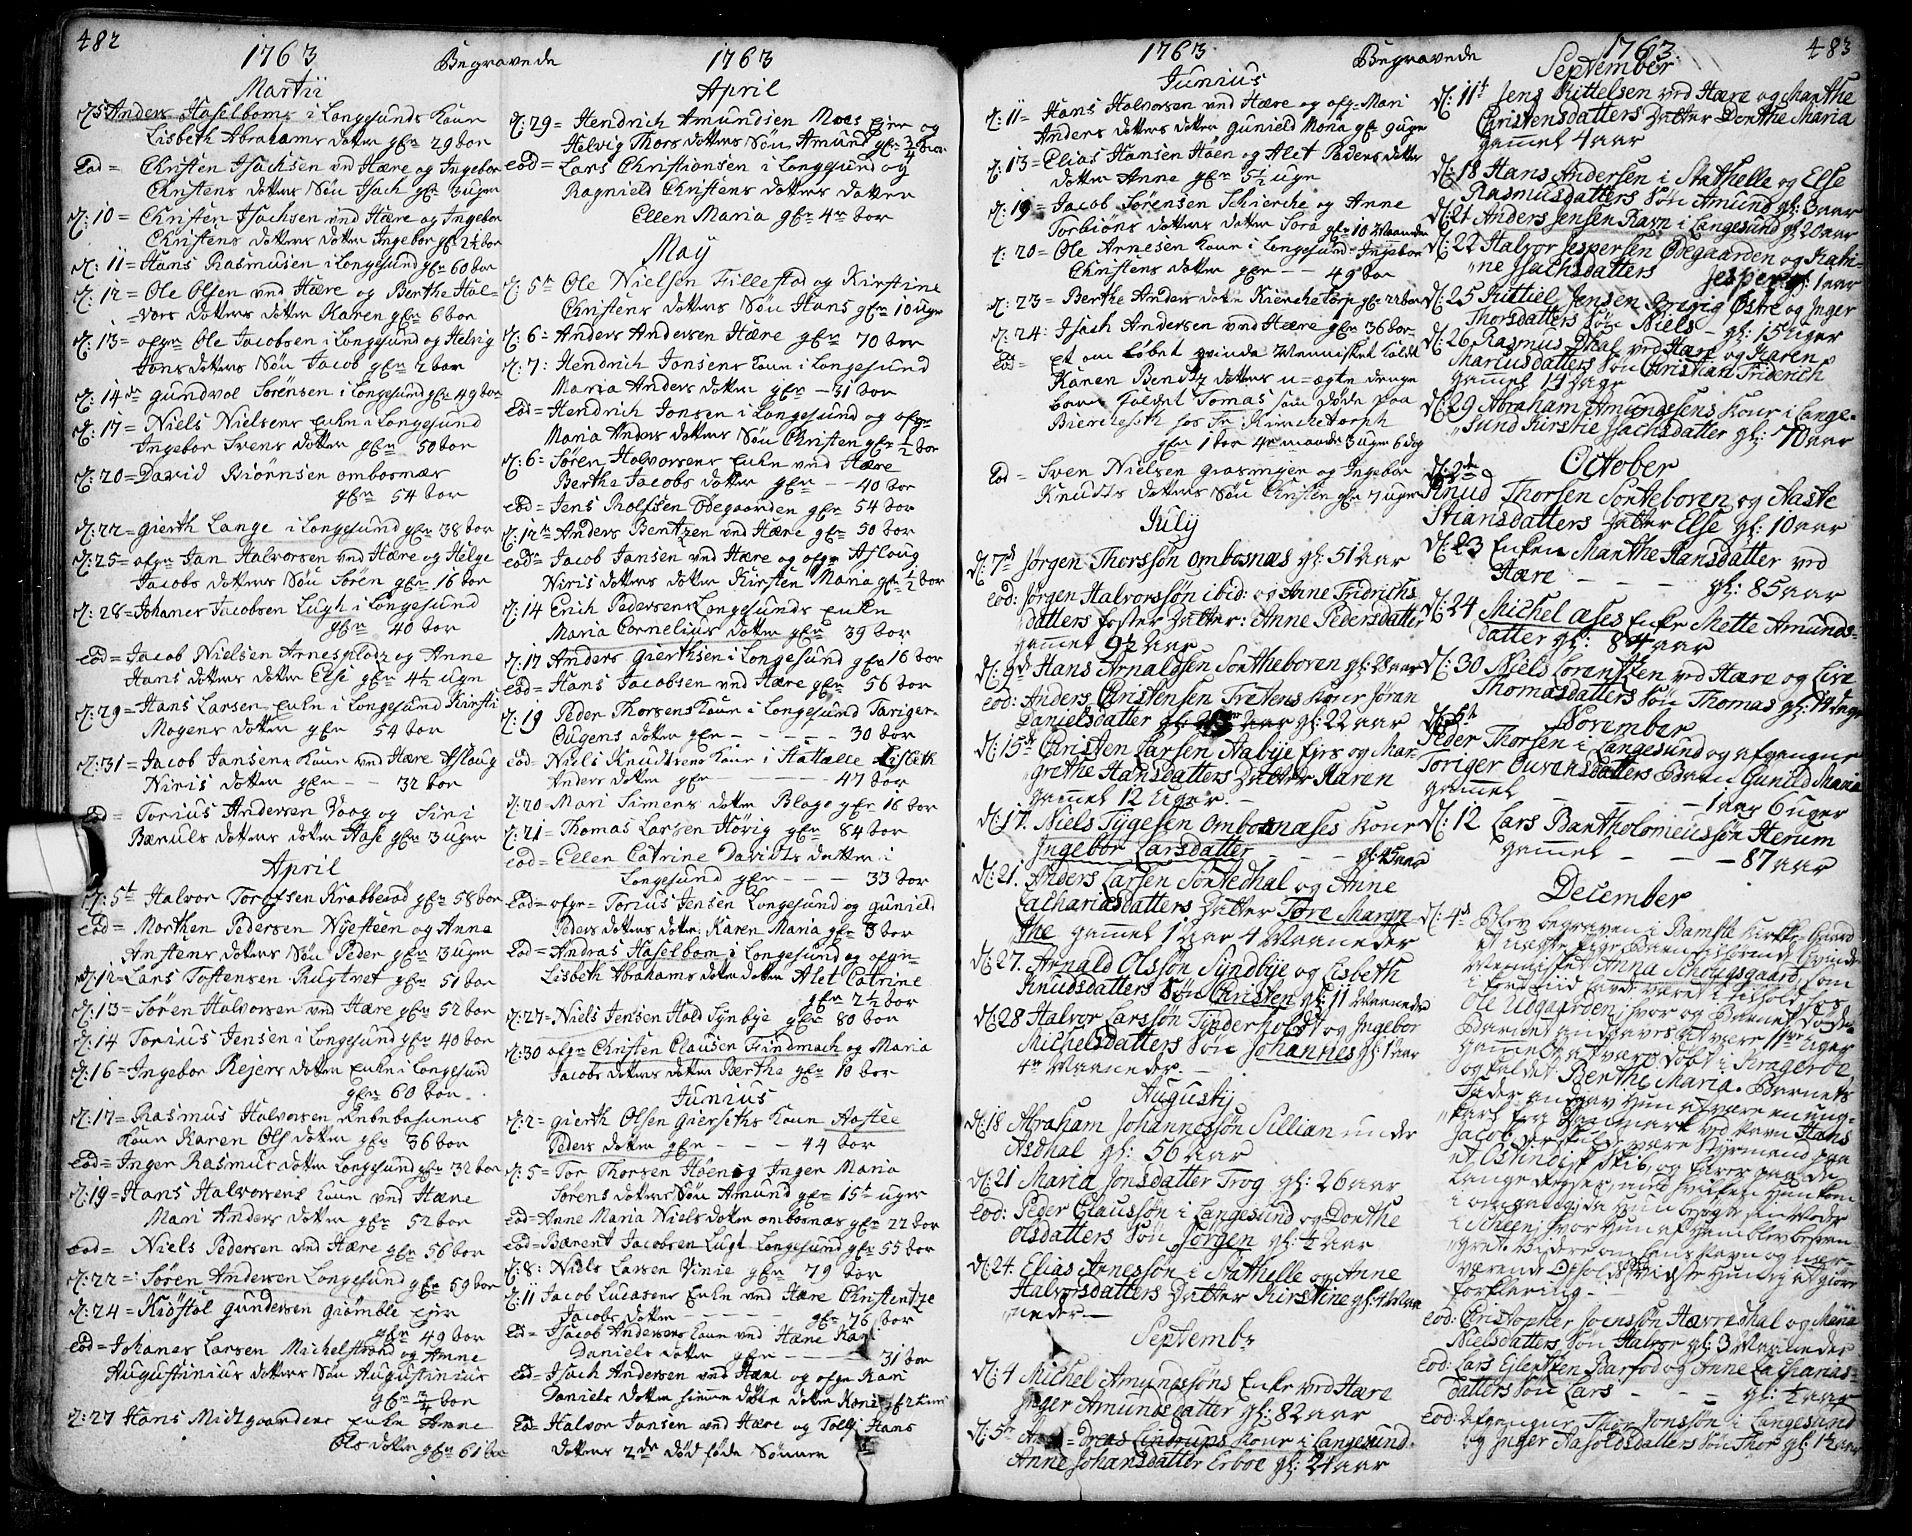 482
1763
Begravede
Martii
d: 5 Anders Haselboms i Langesunds Kone
Lisbeth Abrahams dotter gl: 29 aar
Eod= Christen Isachsen ved Hære og Ingebor
Christens dotters Søn Isach gl: 3 uger
d: 10= Christen Isachsen ved Hære og Ingebor
Christens dotters dotter Ingebor gl: 2½ aar
d: 11= Hans Rasmusen i Langesund gl: 60 aar
d: 12= Ole Olsen ved Hære og Berthe Hal-
vors dotters dotter Karen gl: 6 aar
d: 13= afgn Ole Jacobsen i Langesund og Helvig
Jons dotters Søn Jacob gl: 2 aar
d: 14de Gundvol Sørensen i Langesund gl: 49 aar
d: 17= Niels Nielsens Enke i Langesund
Ingebor Svens dotter gl: 50 aar
d: 20= David Biörnsen ombosnæs
gl: 54 aar
d: 22= Gierth Lange i Langesund gl: 38 aar
d: 25= afgn Jan Halvorsen ved Hære og Helge
Jacobs dotters Søn Sören gl: 16 aar
d: 28= Johanes Jacobsen Lugt i Langesund
gl: 40 aar
eod= Jacob Nielsen Arnesplads og Anne
Hans dotters dotter Else gl: 4½ uger
d: 29= Hans Larsen Enke i Langesund Kirsti
Mogens dotter gl: 54 aar
d: 31= Jacob Jansens Kone ved Hære Aslaug
Niris dotter gl: – – 32 aar
Eod= Torius Andersen Vaag og Sini
Bæruls dotters dotter Aase gl: 3 uger
April
d: 5t Halvor Torofsen Krabberød gl: 58 aar
Eod= Morthen Pedersen Nysteen og Anne
Anstens dotters Søn Peder gl: 3 uger
d: 12= Lars Toftensen Rugtvet gl: 51 aar
d: 13= Søren Halvorsen ved Hære gl: 52 aar
d: 14 Torius Jensen i Langesund gl: 40 aar
d: 16= Ingebor Rejers dotter Enke i Langesund
gl: 60 aar
d: 17= Rasmus Halvorsen
Kone Karen Ols dotter gl: 36 aar
eod= Inger Rasmus dotter Langesund gl: 32 aar
d: 19= Hans Halvorsens Kone ved Hære
Mari Anders dotter gl: 52 aar
eod= Niels Pedersen ved Hære gl: 56 aar
d: 22= Sören Andersen Langesund gl: 69 aar
d: 24= Kidstol Gundersen Grømble
gl: 49 aar
Eod= Johanes Larsen Michelstrand og Anne
Augustinius dotters Søn Augustinius
gl: ¾ aar
d: 27 Hans Midtgaardens Enke Anne
Ols dotter gl: 61 aar
1763
April
d: 29= Hendrich Amundsen Moes Ejer og
Helvig Thors dotters Søn Amund gl: ¾ aar
eod= Lars Christiansen i Langesund og
Ragnield Christens dotters dotter
Ellen Maria gl: 4 aar
May
d: 5te Ole Nielsen Fillestad og Kirstine
Christens dotters Søn Hans gl: 10 uger
d: 6= Anders Andersen Hære gl: 70 aar
d: 7: Hendrich Jonsens Kone i Langesund
Maria Anders dotter gl: – 31 aar
Eod= Hendrich Jonsen i Langesund og afgn
Maria Anders dotters Søn Christen gl: ½ aar
d: 6= Søren Halvorsens Enke ved Hære
Berthe Jacobs dotter gl: – – 40 aar
eod= Jens Rolfsen Ødegaarden gl: 54 aar
d: 12te Anders Bentzen ved Hære gl: 50 aar
eod= Jacob Jansen ved Hære og afgn Aslaug
Niris dotters dotter Kirsten Maria gl: ½ aar
d: 14 Erich Pedersens Langesunds Enke
Maria Cornelius dotter gl: 39 aar
d: 17 Anders Gierthsen i Langesund gl: 16 aar
eod= Hans Jacobsen ved Hære gl: 56 aar
d: 19 Peder Thorsens Kone i Langesund Toriger-
Eugens dotter gl: – – – – – 30 aar
Eod= Niels Knudtsens Kone i Hattelle Lisbeth
Anders dotter gl: – – – – – 47 aar
d: 20= Mari Simens dotter Blage gl: 16 aar
d: 21= Thomas Larsen Hørig gl: 84 aar
eod= Ellen Catrine Davidts datter i
Langesund gl: – – – 33 aar
Eod= afgn Torius Jensen Langesund og Gunield
Peders dotters dotter Karen Maria gl: 3 aar
Eod= Andras Haselbom i Langesund og afgn
Lisbeth Abrahams dotters dotter Alet Catrine
gl: 2½ aar
d: 27= Niels Jensen Hald Synbye gl: 80 aar
d: 30 afgn Christen Clausen Findmach og Maria
Jacobs dotters dotter Berthe gl: 10 aar
Junius
d: 2= Gierth Olsen Gierseths Kone Aastee
Peders dotter gl: – – – 44 aar
d: 5= Tor Thorsen Høen og Inger Maria
Sørens dotters Søn Amund gl: 15t uger
eod= Anne Maria Niels dotter ombosnæs gl: 22 aar
eod= Bærent Jacobsen Lugt Langesund gl: 55 aar
d: 8: Niels Larsen Vinie gl: 79 aar
d: 11 Jacob Lucasens Enke ved Hære Christentze
Jacobs dotter – – – – gl: 76 aar
Eod= Isach Andersens Kone ved Hære Kari
Daniels dotter gl: – – – – 31 aar
Eod= Isach Andersen ved Hære og afgn Kari
Daniels dotters dotter Kari gl: 2 timer
Eod= Halvor Jansen ved Hære og Tolle Hans
dotters 2de død fødte Sønner
1763
Begravede
Junius
d: 11= Hans Halvorsen ved Hære og afgn Mari
Anders dotters dotter Gunield Maria gl: 9 uger
d: 13= Elias Hansen Höen og Alet Peders dotters
dotter Anne gl: 5½ uger
d: 19= Jacob Sørensen Schierche og Anne
Torbiöns dotters dotter Sara gl: 10 Maaneder
d: 20= Ole Arnesen Kone i Langesund Ingebor
Christens dotter gl: – – 49 aar
d: 23= Berthe Anders dotter Kierchetorp gl: 22 aar
d: 24: Isach Andersen ved Hære gl: 36 aar
Eod= Et om løbet qvinde Mennischet kaldt
Karen Bentz dotters u=ægte drenge
barn kaldet Tomas som døde paa
Bierchesth hos Fr. Kirchetorph
gl: 1 aar 4re maaneder 3 uger 6 dag
Eod= Sven Nielsen grasringen og Ingebor
Knudts dotters Søn Christen gl: 7 uger
July
d: 7d Jørgen Thorssøn ombosnæs gl: 51 aar
eod: Jørgen Halvorssøn ibid: og Anne Fridrichs
datters foster Datter: Anne Pedersdatter
gammel 9½ aar
d: 9d Hans Arnaldsen Sonteboren gl: 28 aar
eod: Anders Christensen Tretens Kone Jøran
Danielsdatter gl: 22 aar
d: 15d Christen Larsen Stabye Ejers og Mar-
grethe Hansdatters Datter Karen
gammel 12 Uger. –
d: 17. Niels Tygesen ombosnæses Kone
Ingebor Larsdatter – – – gl: 45 aar
d: 21. Anders Larsen Sontedhal og Anne
Zachariasdatters Datter Tore Margre-
the gammel 1 aar 4 Maaneder
d: 27. Arnald Olssøn Syndbye og Lisbeth
Knudsdatters Søn Christen gl: 11 Maaneder
d: 28 Halvor Larssøn Tyderholdt og Ingebor
Michelsdatters Søn Johannes gl: 1 aar
4re Maaneder. –
Augustij
d: 18 Abraham Johannessøn Sillian under
Asdhal gl: 56 aar
d: 21 Maria Jonsdatter Trog gl: 26 aar
eod: Peder Claussøn i Langesund og Dorthe
Olsdatters Søn Jørgen gl: ½ aar
d: 24. Elias Arnessøn i Stathelle og Anne
Halvorsdatters Datter Kirstine gl: 4 Maa-
neder –
Septembr
d: 4 Michel Amundssøns Enke ved Hære
Inger Amundsdatter gl: 82 aar
d: 5t Andreas Lindrups Kone i Langesund
Anne Johansdatter Erboe gl: 24 aar
1763
483
September
d: 11t Jens Kittelsen ved Hære og Marthe
Christensdatters Datter Dorthe Maria
gammel 4 aar
d: 18 Hans Andersen i Stathelle og Else
Rasmusdatters Søn Amund gl: 3 aar
d: 21 Anders Jensen Ravn i Langesund gl: 20 aar
d: 22 Halvor Jespersen Ødegaarden og Kathi-
ne Isachsdatters Jesper gl: 1 aar
d: 25 Kittiel Jensen Østre og Inger
Thorsdatters Søn Niels – gl: 15 Uger
d: 26 Rasmus Dhal ved Hære og Karen
Marcusdatters Søn Christian Friderich
gammel 14 dage
d: 29 Abraham Amundssens Kone i Lange-
sund Kirstie Isachsdatter gl: 70 aar
October
d: 2d
Knud Thorsen Sonteboren og Aaste
Stiansdatters Datter Else gl: 10 aar
d: 23 Enken Marthe Hansdatter ved
Hære – – – – gl: 85 aar
d: 24 Michel Ases Enke Mette Amunds-
datter gl: 84 aar
d: 30 Niels Lorentzen ved Hære og Live
Thomasdatters Søn Thomas gl: 14 dage
November
Peder Thorsen i Langesund og afgangne
Toriger Ouvensdatters Barn Gunild Maria
gammel – – – – 1 aar 6 uger
d: 12 Lars Bartholomeussøn Sterum
gammel – – – – 87 aar
December
d: 4d Blev begraven i Bamble Kirke Gaard
et uægte Pige Barn tilhørende Qvinde
Mennisket Anna Schougsgaard, som
i fortiid haver været i tilhold hos
Ole Udgaarden, hvor og Barnet døde
Barnet angaves at være 11ve uger
gammelt, at være døbt i Kragerøe
og kaldet Berthe Maria. Barnets
Fader angav Hun at være en ung-
karl fra Danmark ved Navn Hans
Jacob, der skulde være Styrmand paa
et Ostindisk Skib, og farer paa de
lange Reyser, med hvilken Hun kom
i omgang, da Hun besøgte sin Moder
i Scheen, hvor Hun af Ham blev besvan-
gret. Videre om hans Navn og nær-
værende Ophold vidste Hun ey at giøre
forklaring. –
eod: Christopher Joenssøn Hærredhal og Maria
Nielsdatters Søn Halvor gl: 3 Maaneder
eod: Lars Glentzen Barfod og Anne Zacharias-
datters Søn Lars – – – gl: ½ aar
eod: Afgangne Thor Jonssøn i Langesund
og Inger Aasoldsdatters Søn Thor gl: 1½ aar